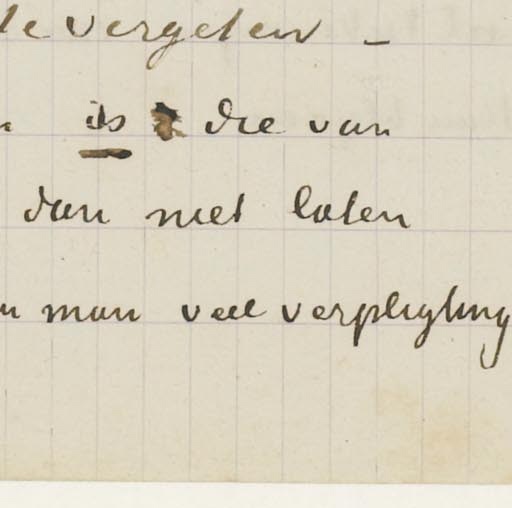 te vergeten –
is die van
dan niet laten
man veel verpligting